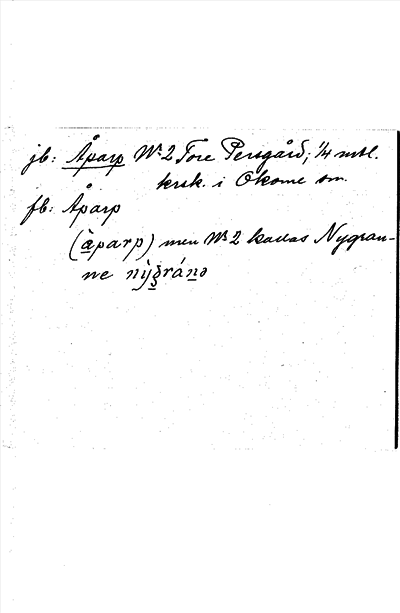 jb: Åparp Nr 2 Tore Persgård; 1/4 mtl.
krsk. i Okome sn.
fb: Åparp
(àparp) men Nr 2 kallas Nygran-
ne nỳgránə